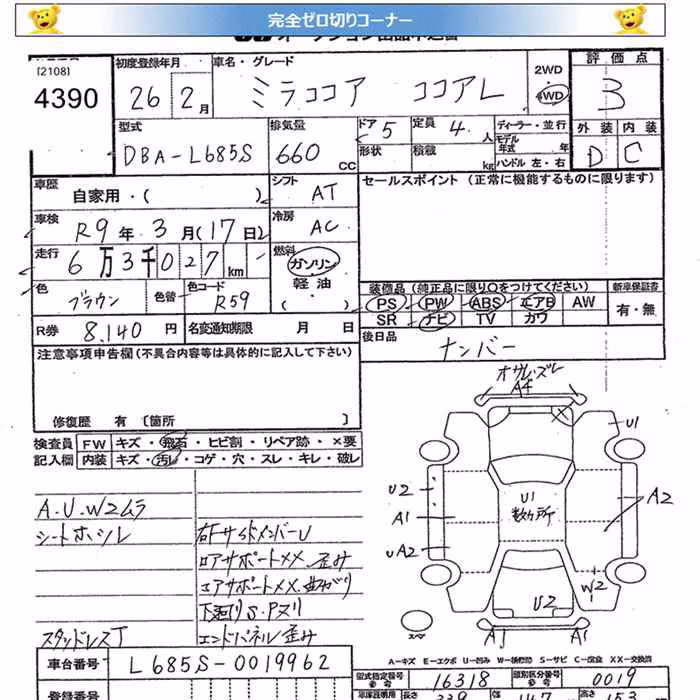 完全ゼロ切りコーナー
[2108]
4390
初度登録年月
26年2月
車名・グレード
ミラココア ココアL
2WD
4WD
評価点
3
外装 内装
D C
型式
DBA-L685S
排気量
660 CC
ドア 5
定員 4 人
形状
積載 kg
ディーラー・並行
モデル年式 年
ハンドル 左・右
車歴
自家用・( )
シフト
AT
セールスポイント (正常に機能するものに限ります)
車検
R9年3月(17日)
冷房
AC
走行
6万3千027km
燃料
ガソリン
軽油
( )
色
ブラウン
色替
色コード
R59
装備品 (純正品に限り○をつけてください)
新車保証書
PS PW ABS エアB AW
有・無
SR ナビ TV カワ
R券 8,140円
名変通知期限 月 日
後日品
ナンバー
注意事項申告欄(不具合内容等は具体的に記入して下さい)
修復歴 有 〔箇所 〕
検査員記入欄
FW キズ・飛石・ヒビ割・リペア跡・×要
内装 キズ・汚レ・コゲ・穴・スレ・キレ・破レ
A4
U1
U2
U1
数ヶ所
A1
A2
UA2
W2
U2
A1
A1
スマ
A.U.W2ムラ
シートホシレ
右FサイドメンバーU
ロアサポートXX.歪み
エアサポートXX.曲がり
下廻りS.Pヌリ
スタッドレスT
エンドパネル歪み
A-キズ E-エクボ U-凹み W-補修跡 S-サビ C-腐食 XX-交換済
車台番号
L685S-0019962
型式指定番号
16318
類別区分番号
0019
登録番号
車庫証明用
長さ
339
幅
147
高さ
153